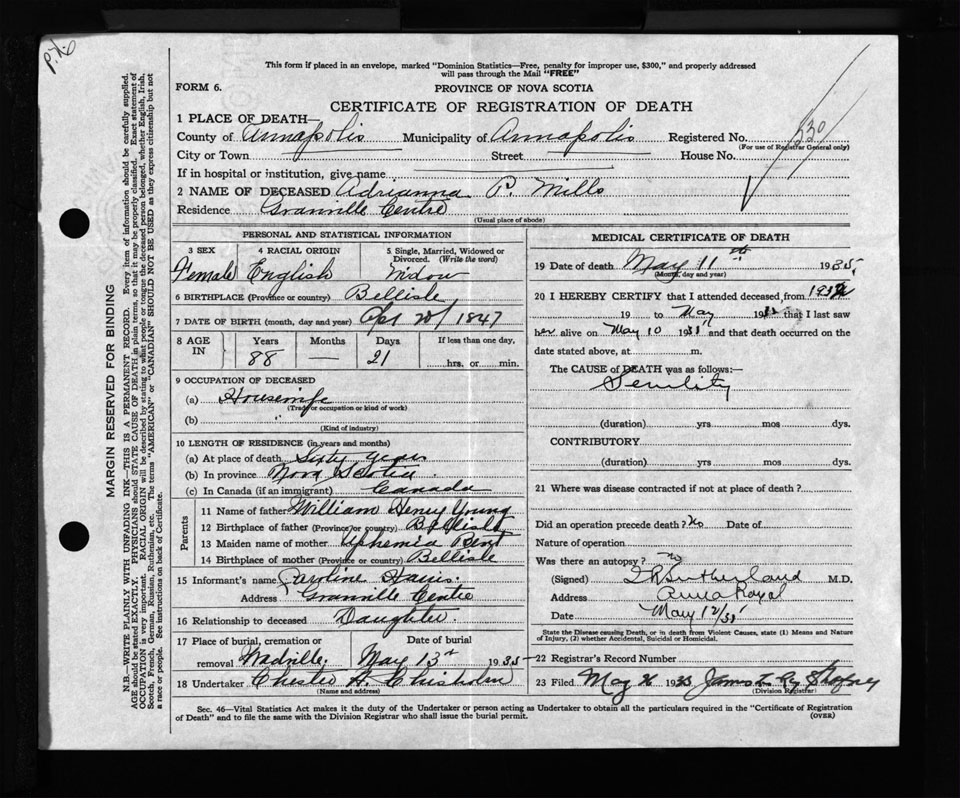 P.X.
This form if placed in an envelope, marked "Dominion Statistics—Free, penalty for improper use, $300," and properly addressed
will pass through the Mail "FREE"
FORM 6.
PROVINCE OF NOVA SCOTIA
CERTIFICATE OF REGISTRATION OF DEATH
1 PLACE OF DEATH—
County of Annapolis Municipality of Annapolis Registered No. 330
(For use of Registrar General only)
City or Town Street House No.
If in hospital or institution, give name
2 NAME OF DECEASED Adrianna P. Mills
Residence Granville Centre
(Usual place of abode)
PERSONAL AND STATISTICAL INFORMATION
3 SEX 4 RACIAL ORIGIN 5 Single, Married, Widowed or
Divorced. (Write the word)
Female English Widow
6 BIRTHPLACE (Province or country) Bellisle
7 DATE OF BIRTH (month, day and year) Apr 20/1847
8 AGE IN Years Months Days If less than one day,
88 — 21 hrs. or min.
9 OCCUPATION OF DECEASED
(a) Housewife
(Trade or occupation or kind of work)
(b)
(Kind of industry)
10 LENGTH OF RESIDENCE (in years and months)
(a) At place of death Sixty years
(b) In province Nova Scotia
(c) In Canada (if an immigrant) Canada
Parents
11 Name of father William Henry Young
12 Birthplace of father (Province or country) Bellisle
13 Maiden name of mother Aphemia Bent
14 Birthplace of mother (Province or country) Bellisle
15 Informant's name Caroline Harris.
Address Granville Centre
16 Relationship to deceased Daughter
17 Place of burial, cremation or Date of burial
removal Wadville May 13th 1935
18 Undertaker Chester A. Chisholm
(Name and address)
MEDICAL CERTIFICATE OF DEATH
19 Date of death May 11th 1935.
(Month, day and year)
20 I HEREBY CERTIFY that I attended deceased from 193
19 to May 193 that I last saw
her alive on May 10 193 and that death occurred on the
date stated above, at m.
The CAUSE of DEATH was as follows:—
Senility
(duration) yrs mos dys.
CONTRIBUTORY
(duration) yrs mos dys.
21 Where was disease contracted if not at place of death?
Did an operation precede death? No Date of
Nature of operation
Was there an autopsy? no
(Signed) Sutherland M.D.
Address Anna Royal
Date May 12/35
State the Disease causing Death, or in death from Violent Causes, state (1) Means and Nature
of Injury, (2) whether Accidental, Suicidal or Homicidal.
22 Registrar's Record Number
23 Filed May 1935 James
(Division Registrar)
Sec. 46—Vital Statistics Act makes it the duty of the Undertaker or person acting as Undertaker to obtain all the particulars required in the "Certificate of Registration
of Death" and to file the same with the Division Registrar who shall issue the burial permit.
(OVER)
MARGIN RESERVED FOR BINDING
N.B.—WRITE PLAINLY WITH UNFADING INK—THIS IS A PERMANENT RECORD. Every item of information should be carefully supplied.
AGE should be stated EXACTLY. PHYSICIANS should STATE CAUSE OF DEATH in plain terms, so that it may be properly classified. Exact statement of
OCCUPATION is very important. RACIAL ORIGIN will be described by stating to what people or tongue the deceased person belonged, whether English, Irish,
Scotch, French, German, Russian, Ruthenian, etc. The terms "AMERICAN" or "CANADIAN" SHOULD NOT BE USED as they express citizenship but not
a race or people. See instructions on back of Certificate.